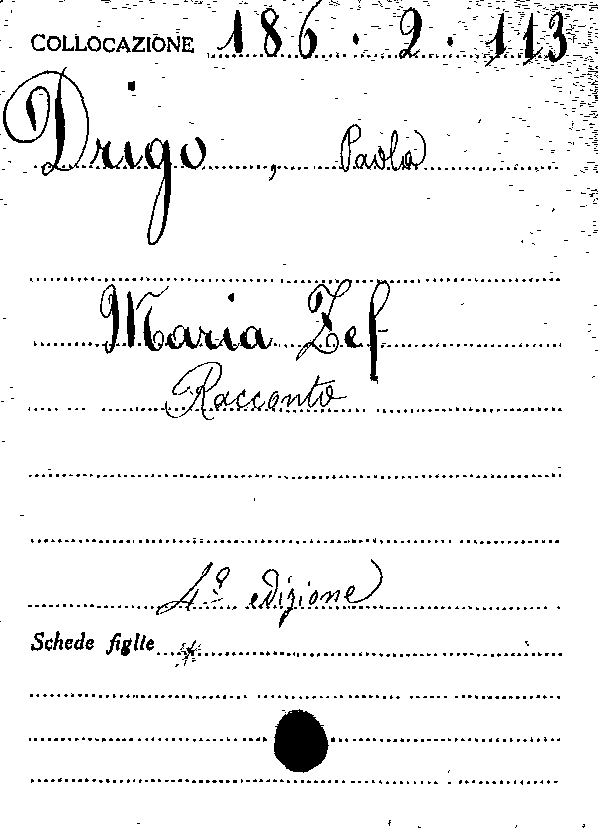 COLLOCAZIONE 186.2.113
Drigo, Paola
Maria Zef
Racconto
4ª edizione
Schede figlie *